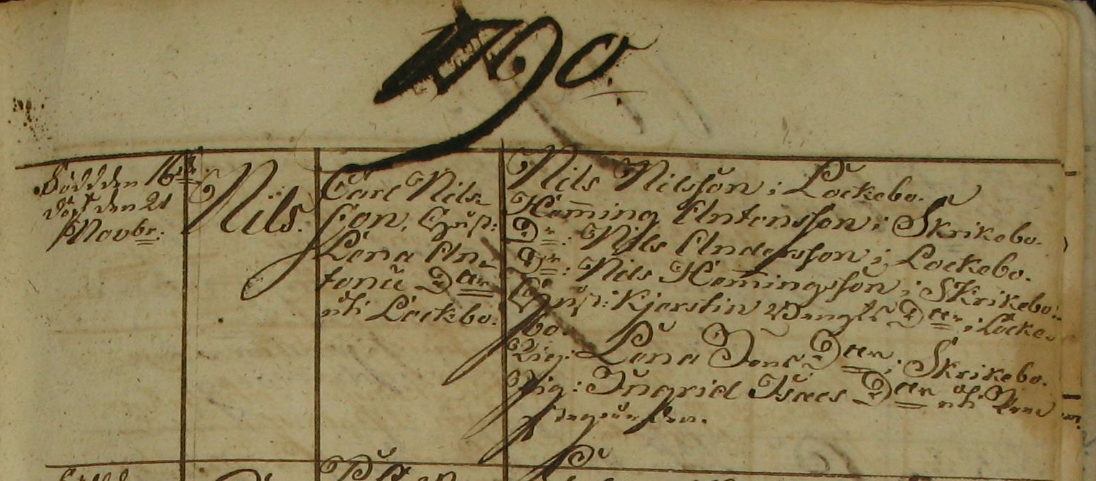 1790.
Född den 16de
döpt den 21
Novbr:
Nils.
Carl Nils-
son, Hust:
Lena An-
tonii Dter
uti Lockebo.
Nils Nilsson i Lockebo.
Heming Antonsson i Skrikebo.
Dr: Nils Andersson i Lockebo.
Dr: Nils Hemingsson i Skrikebo.
Hust: Kjerstin Bengts Dter i Locke-
bo.
Pig: Lena Jons Dter i Skrikebo.
Pig: Ingrid Isacs Dter uti